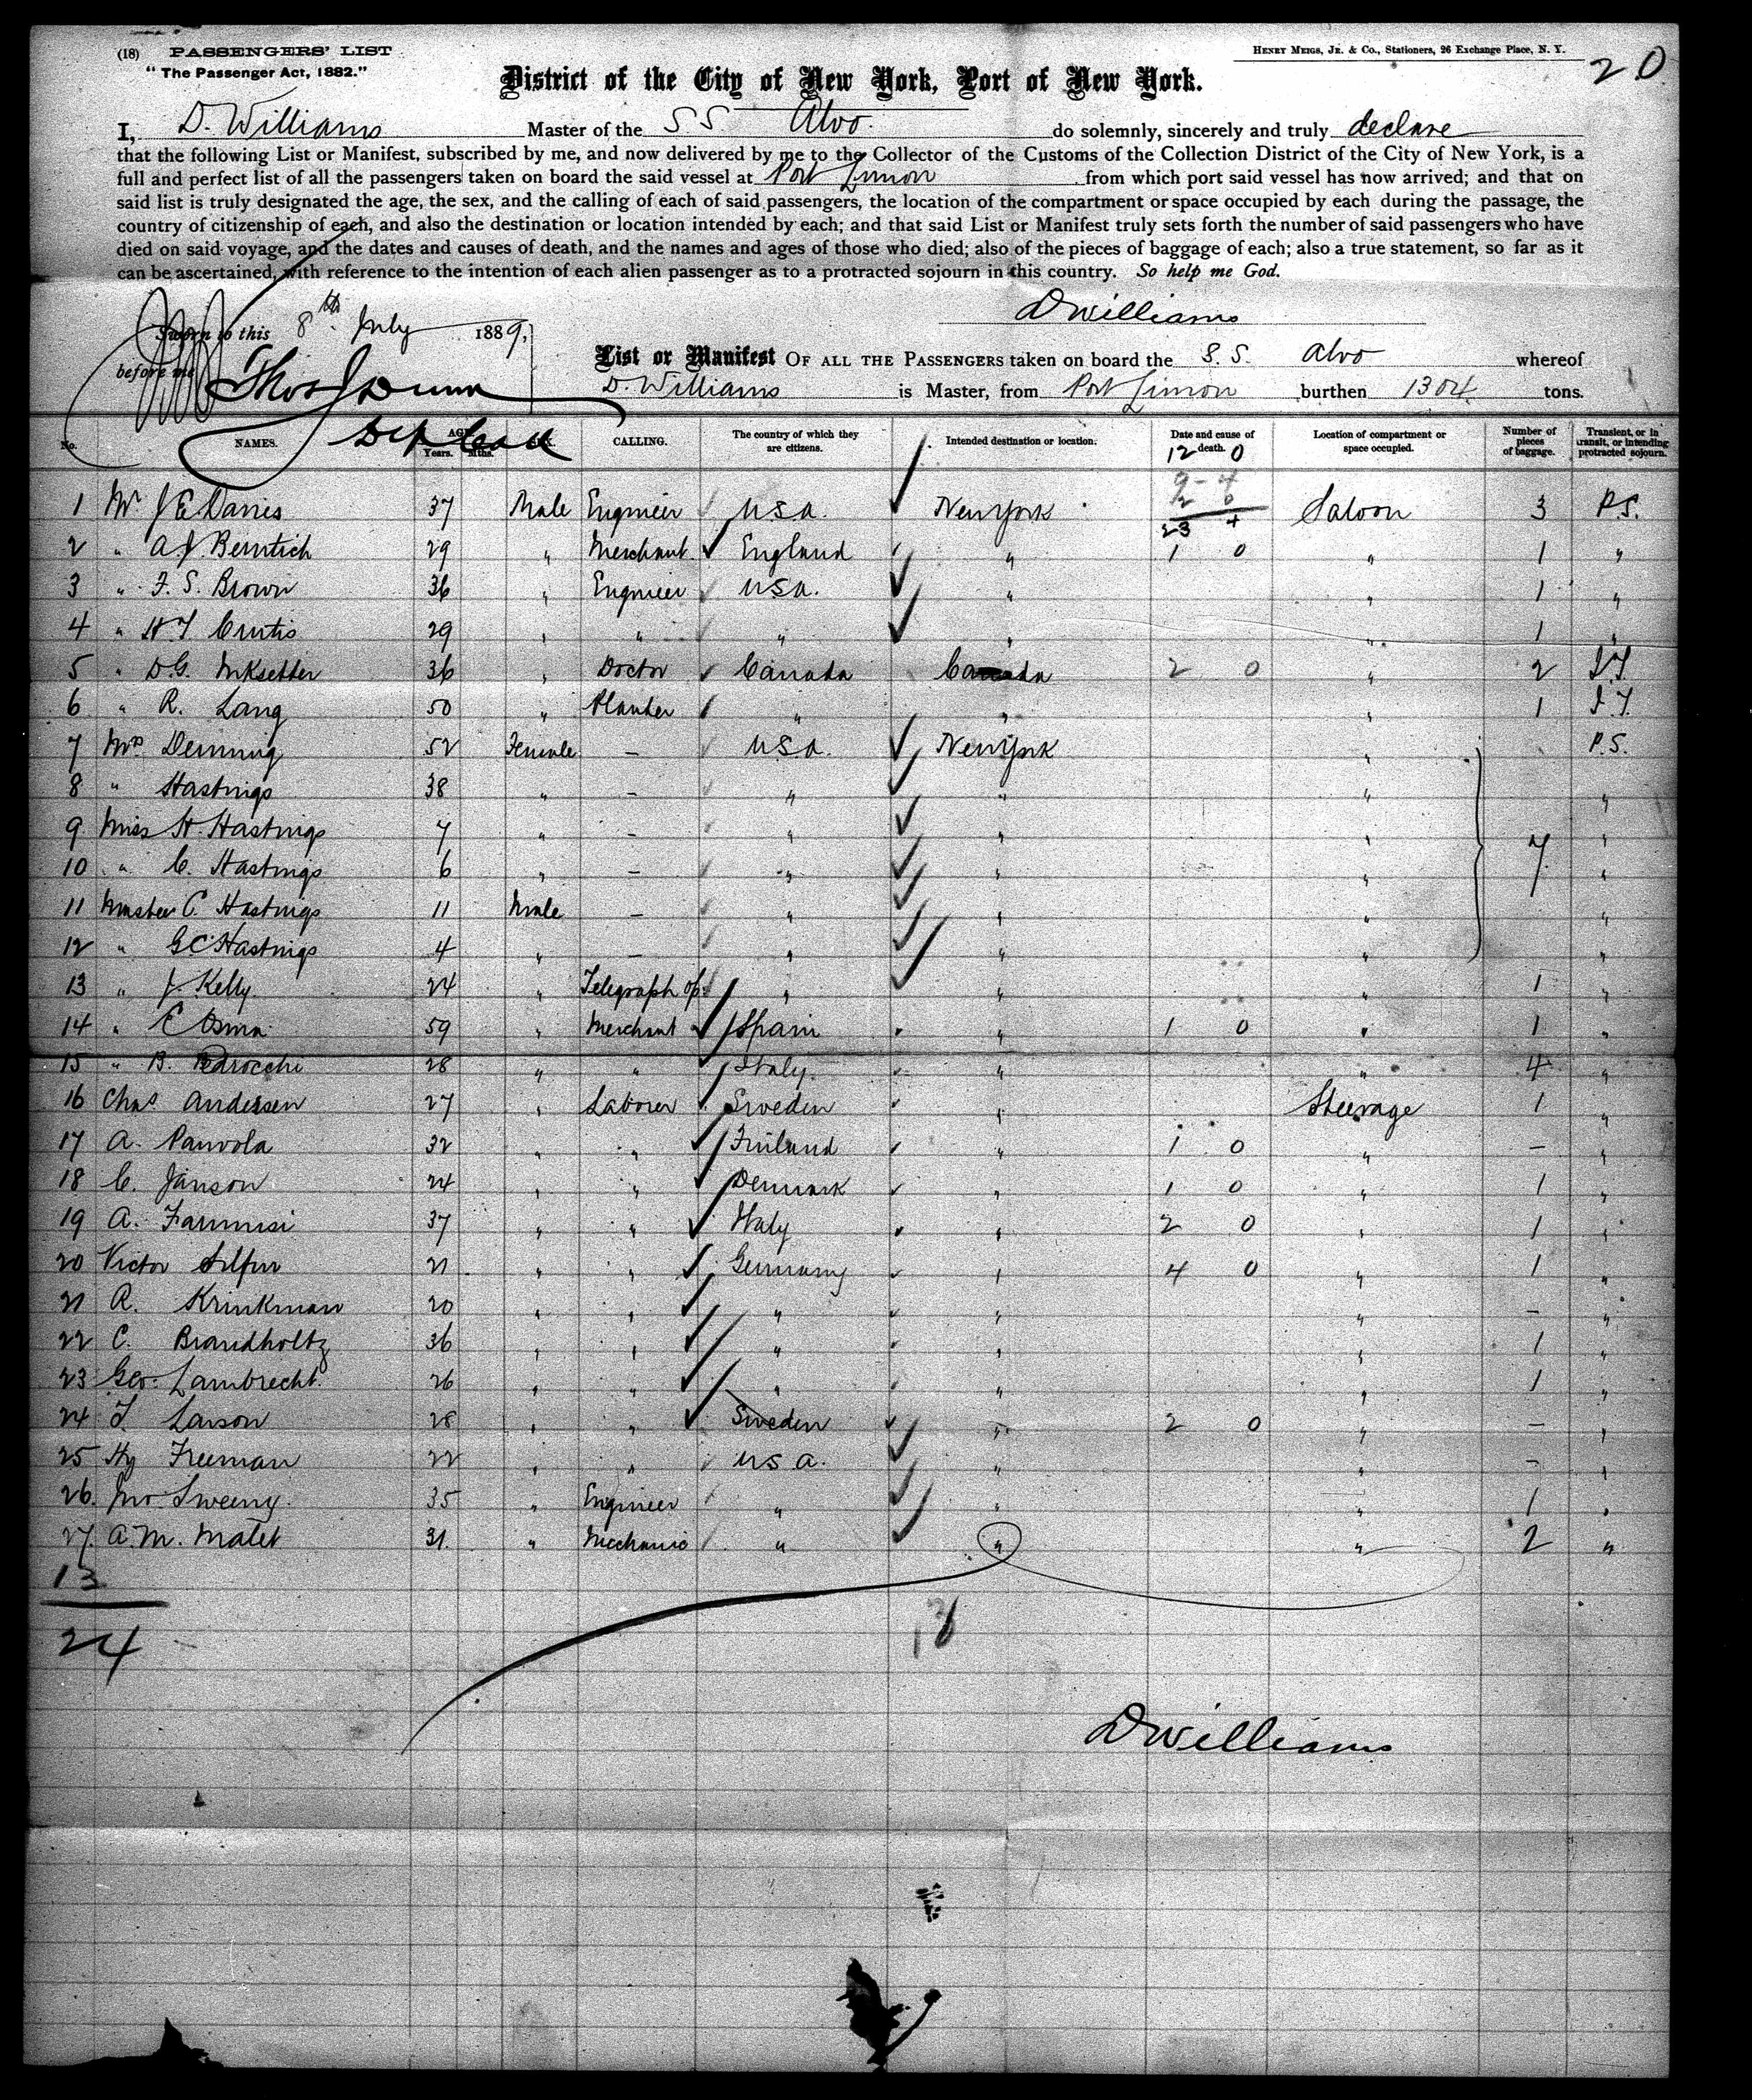 (18) PASSENGERS' LIST
HENRY MEIGS, JR. & CO., Stationers, 26 Exchange Place, N. Y.
20
"The Passenger Act, 1882."
District of the City of New York, Port of New York.
I, D. Williams Master of the S S Alvo. do solemnly, sincerely and truly declare
that the following List or Manifest, subscribed by me, and now delivered by me to the Collector of the Customs of the Collection District of the City of New York, is a
full and perfect list of all the passengers taken on board the said vessel at Port Limon from which port said vessel has now arrived; and that on
said list is truly designated the age, the sex, and the calling of each of said passengers, the location of the compartment or space occupied by each during the passage, the
country of citizenship of each, and also the destination or location intended by each; and that said List or Manifest truly sets forth the number of said passengers who have
died on said voyage, and the dates and causes of death, and the names and ages of those who died; also of the pieces of baggage of each; also a true statement, so far as it
can be ascertained, with reference to the intention of each alien passenger as to a protracted sojourn in this country. So help me God.
DWilliams
Sworn to this 8th July 1889,
before me Thos J Dunn
List or Manifest OF ALL THE PASSENGERS taken on board the S. S. Alvo whereof
D. Williams is Master, from Port Limon burthen 1304 tons.
No. NAMES. AGE Years. Mths. SEX. CALLING. The country of which they are citizens. Intended destination or location. Date and cause of death. Location of compartment or space occupied. Number of pieces of baggage. Transient, or in transit, or intending protracted sojourn.
12 0
9 - 4
2 0
23 4
1 Mr J E Davies 37 Male Engineer U.S.A. New York Saloon 3 P.S.
2 " A J 29 " Merchant England " 1 0 " 1 "
3 " F. S. Brown 36 " Engineer USA. " " 1 "
4 " H T Curtis 29 " " " " " 1 "
5 " D.G. 36 " Doctor Canada Canada 2 0 " 2 I.T.
6 " R. Lang 50 " Planter " " " 1 I.T.
7 Mrs Demning 52 Female - U.S.A. New York " P.S.
8 " Hastings 38 " - " " " "
9 Miss H. Hastings 7 " - " " " "
10 " C. Hastings 6 " - " " " 7 "
11 Master C. Hastings 11 Male - " " " "
12 " G C Hastings 4 " - " " " "
13 " J. Kelly 24 " Telegraph op. " " 1 "
14 " C Osma 59 " Merchant Spain " 1 0 " 1 "
15 " B. Pedrocchi 28 " " Italy " " 4 "
16 Chas Andersen 27 " Laborer Sweden " Steerage 1 "
17 A. 32 " " Finland " 1 0 " - "
18 C. Janson 24 " " Denmark " 1 0 " 1 "
19 A. 37 " " Italy " 2 0 " 1 "
20 Victor 21 " " Germany " 4 0 " 1 "
21 R. Krinkman 20 " " " " " - "
22 C. Brandholtz 36 " " " " " 1 "
23 Geo. Lambrecht 26 " " " " " 1 "
24 T Larson 28 " " Sweden " 2 0 " - "
25 Hy Freeman 22 " " U S A. " " - "
26. Jno Sweeny. 35 " Engineer " " " 1 "
27. A. M. Malet 31. " Mechanic " " " 2 "
13
24
DWilliams